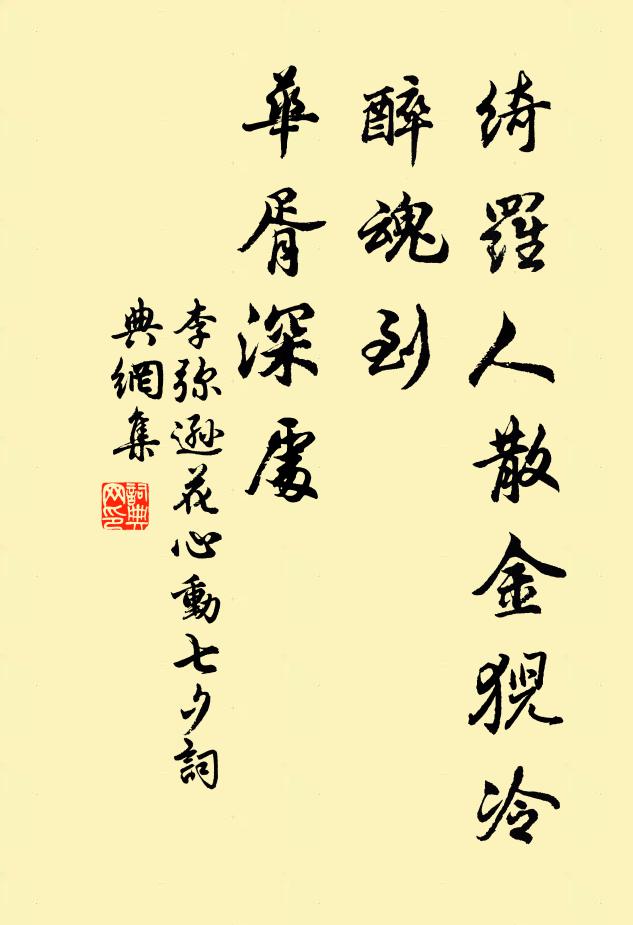 綺羅人散金猊冷
醉魂到
華胥深處
李弥遜花心動七夕詞
典網集
詞典
网印